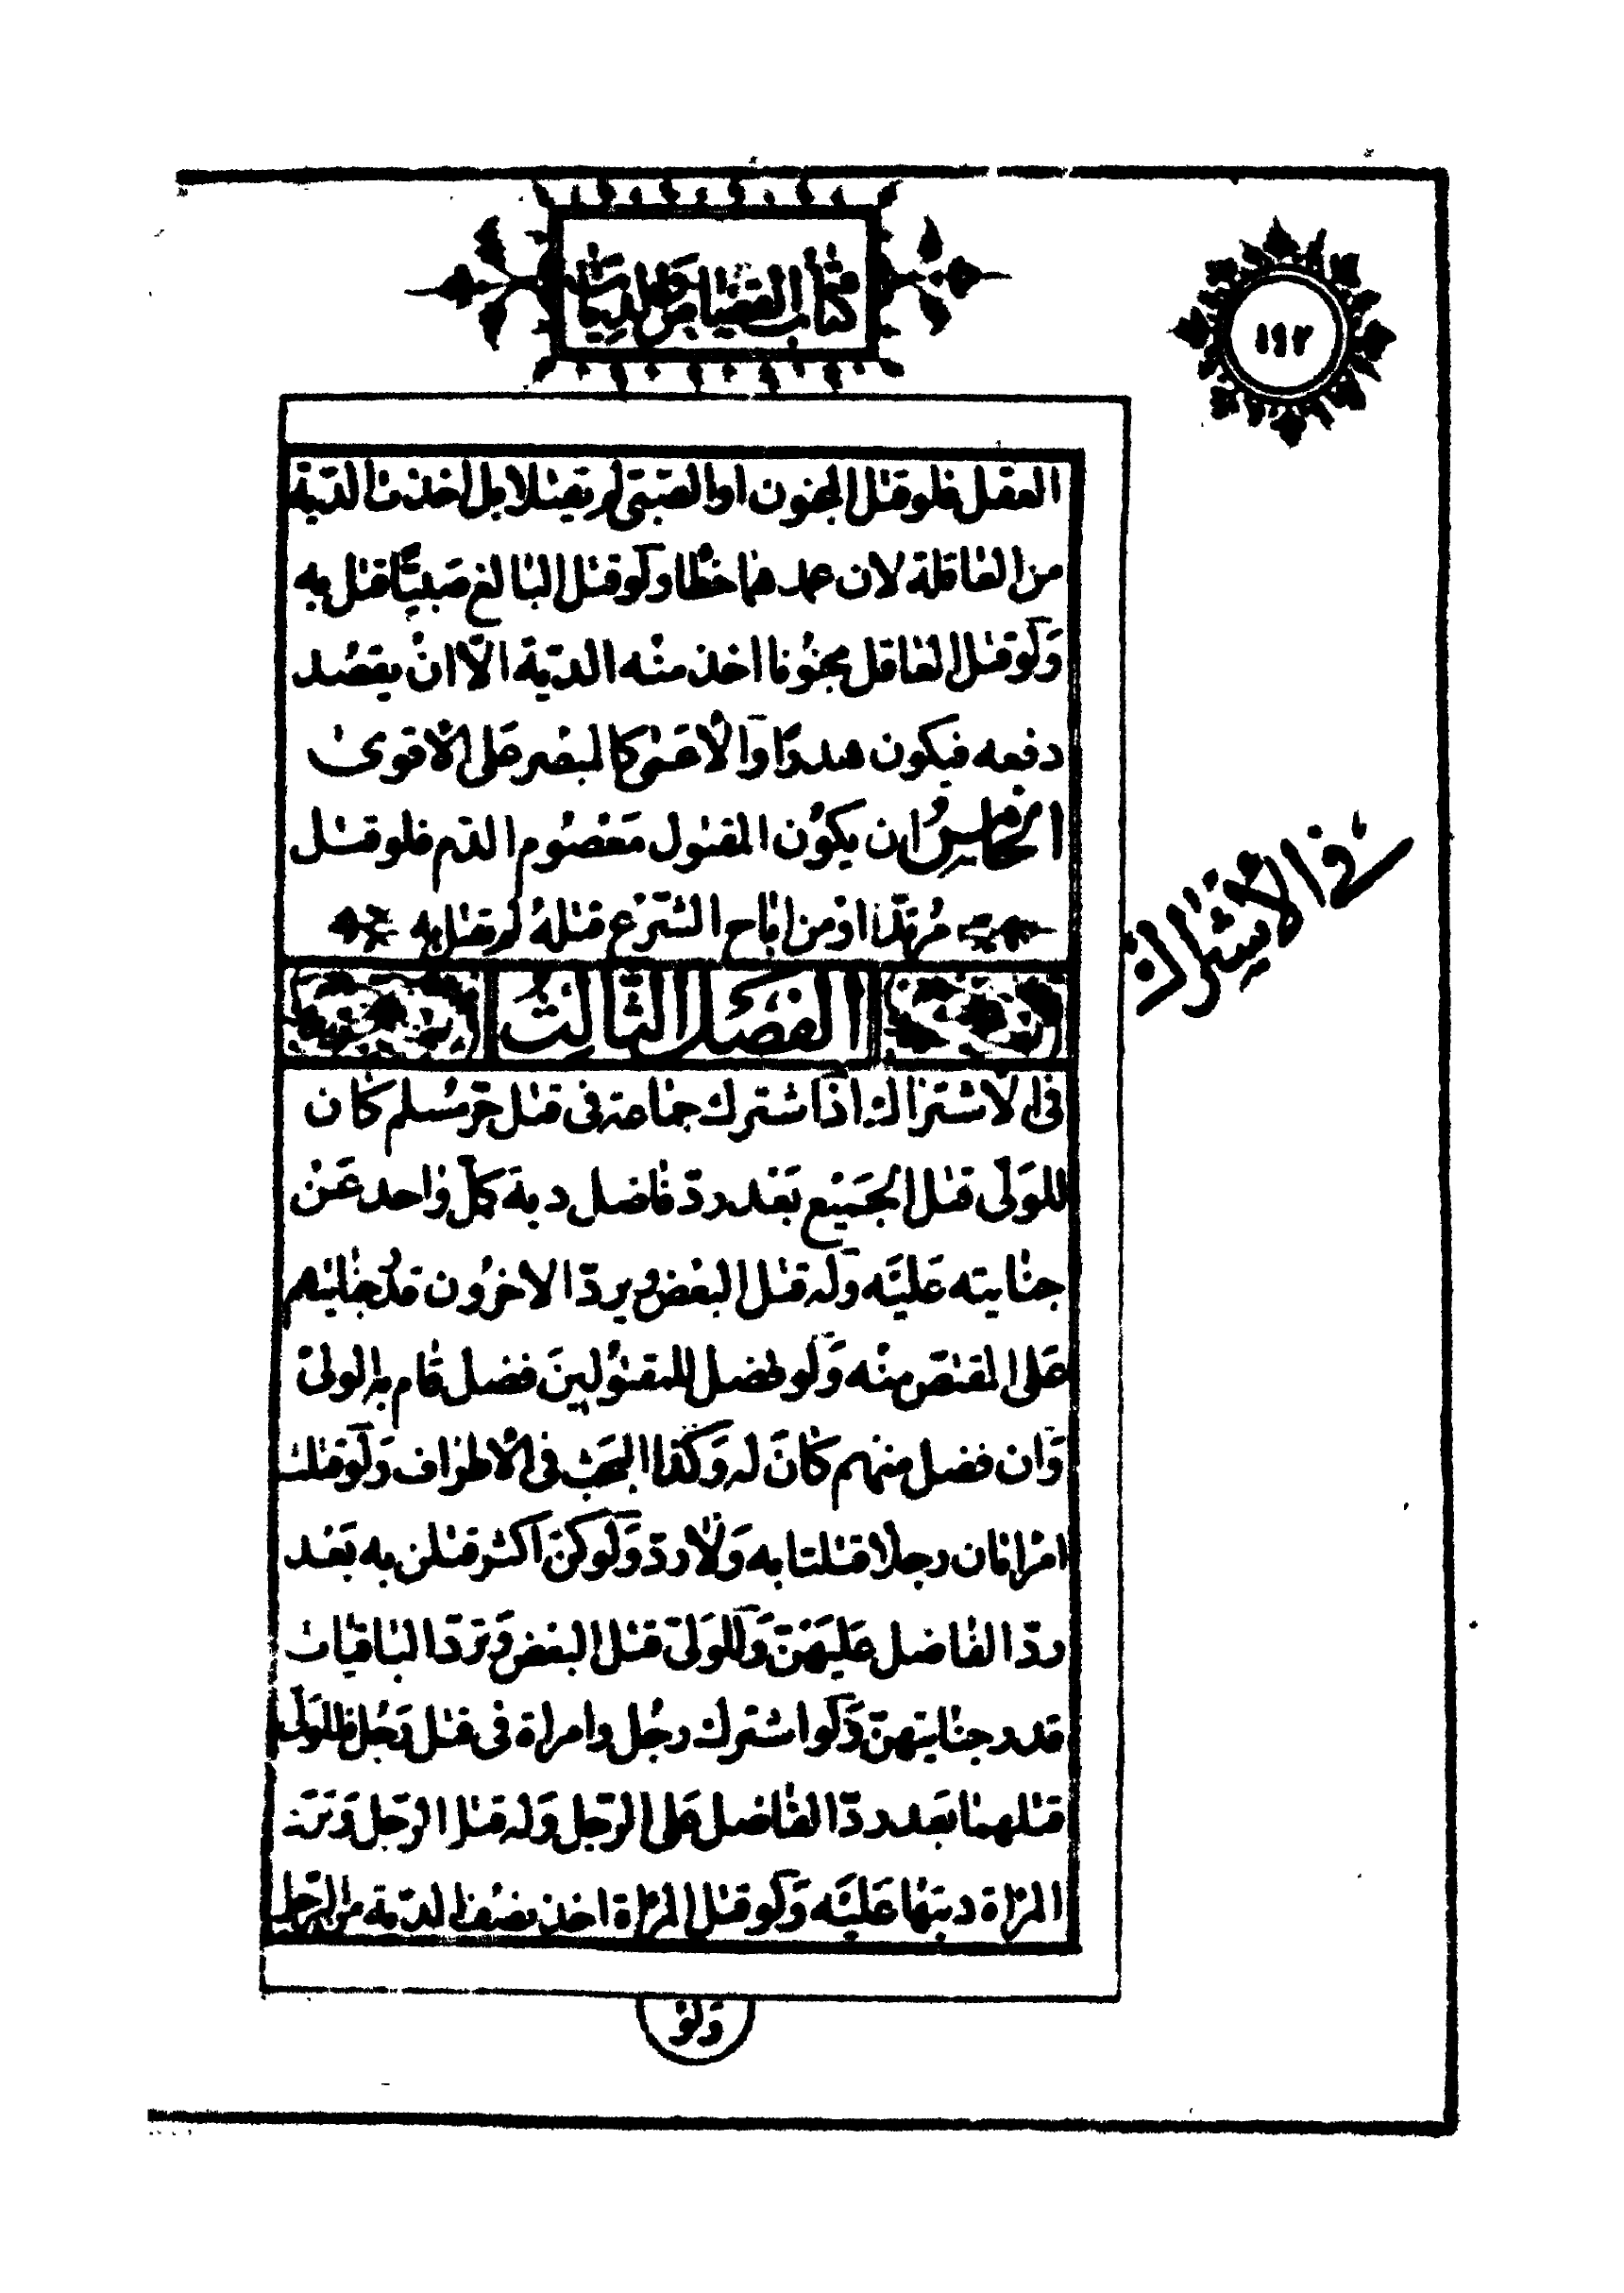 كتاب القصاص والديات
١٩٢
العقل فلو قتل المجنون او الصبي لم يقتلا بل اخذت الدية
من العاقلة لان عمدهما خطأ ولو قتل البالغ صبيّا قتل به
وَلو قتل العاقل مجنُونا اخذ منه الدّية الّا انْ يقصُد
دفعه فيكون هدرًا وَالأعمى كالبصير عَلى الأقوى
الخامسُ ان يكوُن المقتول مَعْصُوم الدّم فلو قتل
مُرتدّا اوْ من اباح الشرْع قتلهُ لم يقتل به
في الأشتراك
الفصل الثالث
في الاشتراك اذا اشترك جماعة في قتل حرّ مسُلم كان
للوَلّى قتل الجَميْع بَعْد ردّ فاضل دية كلّ واحد عَنْ
جنايته عَليْه وَله قتل البعْض ويردّ الاخرُون قدْر جنايتهم
عَلى المقتصّ منْه وَلو فضل للمقتولينَ فضل قام به الولىّ
وَان فضل منهم كانَ له وَكذا البحَث في الأطراف وَلو قتلت
امرْاتان رجلا قتلتا به وَلا ردّ وَلو كنّ اكثر قتلن به بَعْد
ردّ الفاضل عَليهنّ وَللوَلىّ قتل البعْض وَتردّ الباقيات
قدر جنايتهنّ وَلو اشترك رجُل وامراة في قتل رَجُل فللوَلّى
قتلهما بَعد ردّ الفاضل عَلى الرّجل وَله قتل الرّجل وَترَدّ
المرْاة ديتها عَليْه وَلو قتل المرْاة اخذ نصْف الدّية من الرّجل
وَلوْ